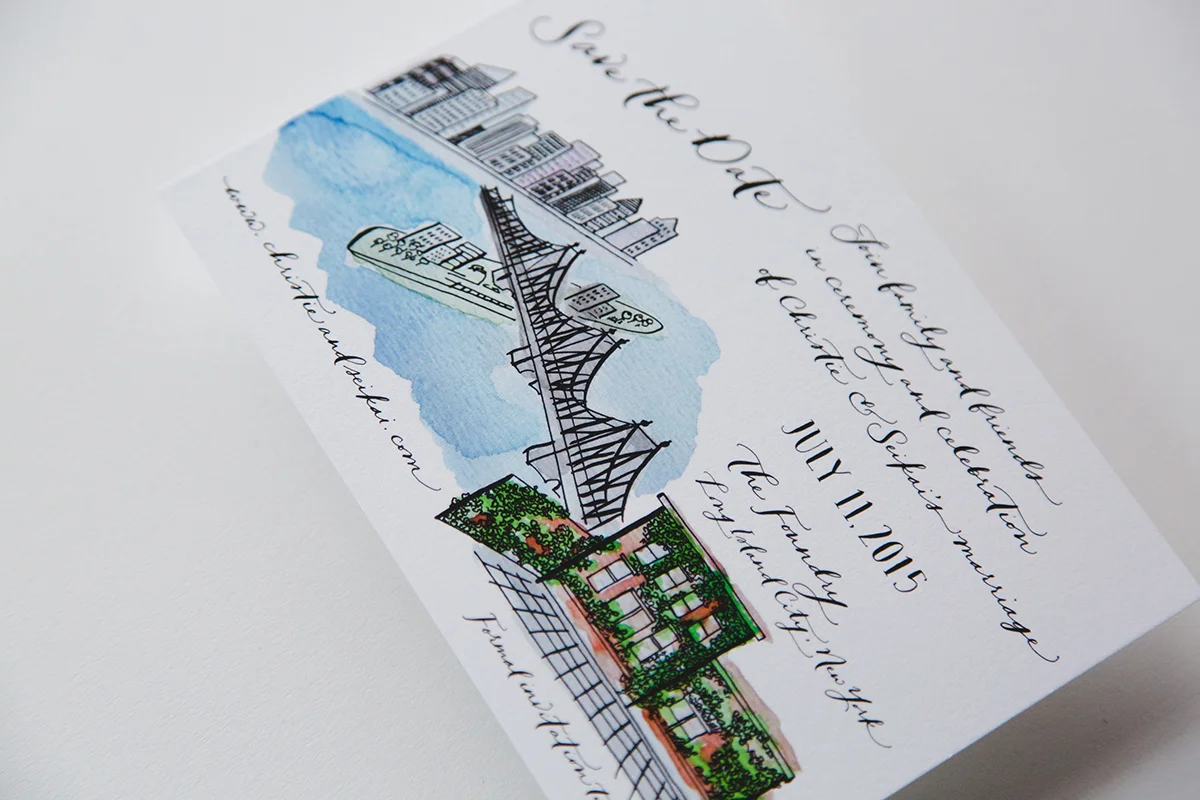 Save the Date
Join family and friends
in ceremony and celebration
of Christie & Seikai's marriage
JULY 11, 2015
The Foundry
Lng Island City, New York
www.christieandseikai.com
Formal invitation t